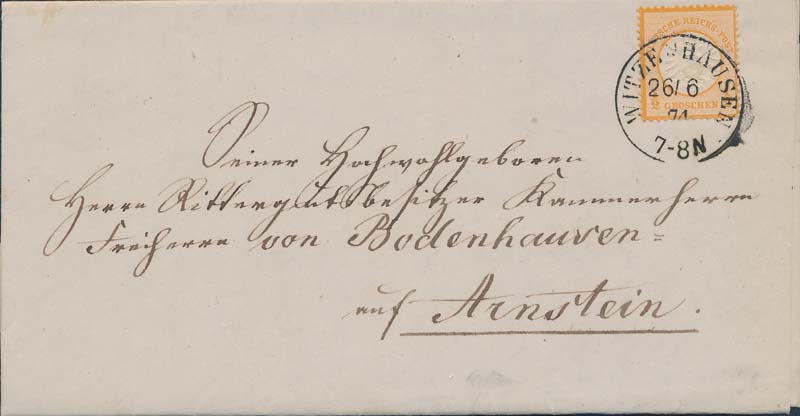 DEUTSCHE REICHS-POST
2 GROSCHEN
WITZENHAUSEN
26/6
74
7-8N
Seiner Hochwohlgeboren
Herrn Rittergutsbesitzer Kammerherrn
Freiherrn von Bodenhausen=
auf Arnstein.